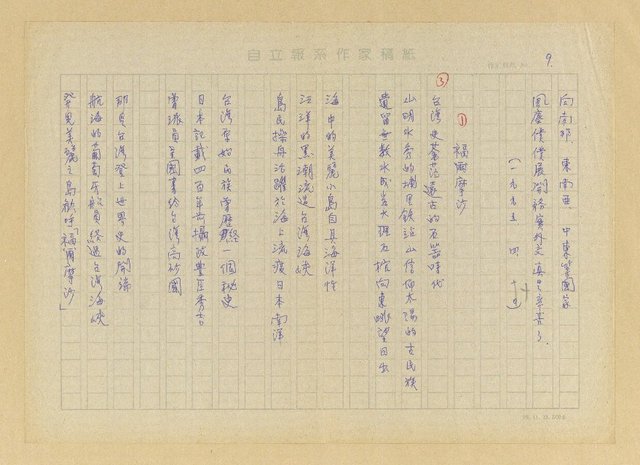 自立報系作家稿紙
9.
向南郭、東南亞、中東等國家
風塵僕僕展開務實外交真是辛苦了。
(一九九五、四、十四)
③
① 福爾摩沙
台灣史蒼茫遠古的石器時代
山明水秀的埔里鎮這山信仰太陽的古民族
遺留無數水成岩大理石棺向東眺望日出
海中的美麗小島自具海洋性
汪洋的黑潮流過台灣海峽
島民操舟活躍於海上流域日本南洋
台灣原始民族常歷經一個秘史
日本記載四百年前攝政豐臣秀吉
曾派員呈國書給台灣高砂國
那是台灣登上世界史的開端
航海的葡萄牙船員經過台灣海峽
發見美麗之島歡呼「福爾摩沙」